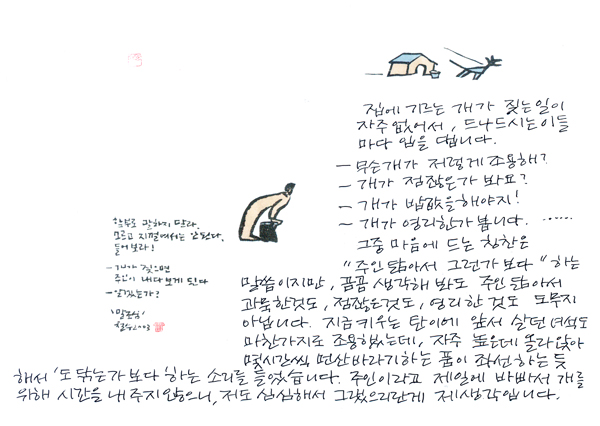 함부로 말하지 말라.
모르고 지껄여서는 안된다.
들어보라!
- 개가 짖으면
주인이 내다보게 된다
- 알겠는가?
집에 기르는 개가 짖는일이
자주 없어서, 드나드시는이들
마다 입을 댑니다.
- 무슨개가 저렇게 조용해?
- 개가 점잖은가 봐요?
- 개가 밥값을해야지!
- 개가 영리한가 봅니다. ......
그중 마음에 드는 칭찬은
"주인 닮아서 그런가 보다" 하는
말씀이지만, 곰곰 생각해 봐도 주인 닮아서
과묵한것도, 점잖은것도, 영리한 것도 도무지
아닙니다. 지금키우는 탄이에 앞서 살던 녀석도
마찬가지로 조용했는데, 자주 높은데 올라앉아
몇시간씩 먼산바라기하는 품이 좌선하는듯
해서 '도 닦는가 보다' 하는 소리를 들었습니다. 주인이라고 제일에 바빠서 개를
위해 시간을 내 주지않으니, 저도 심심해서 그랬으리란게 제생각입니다.